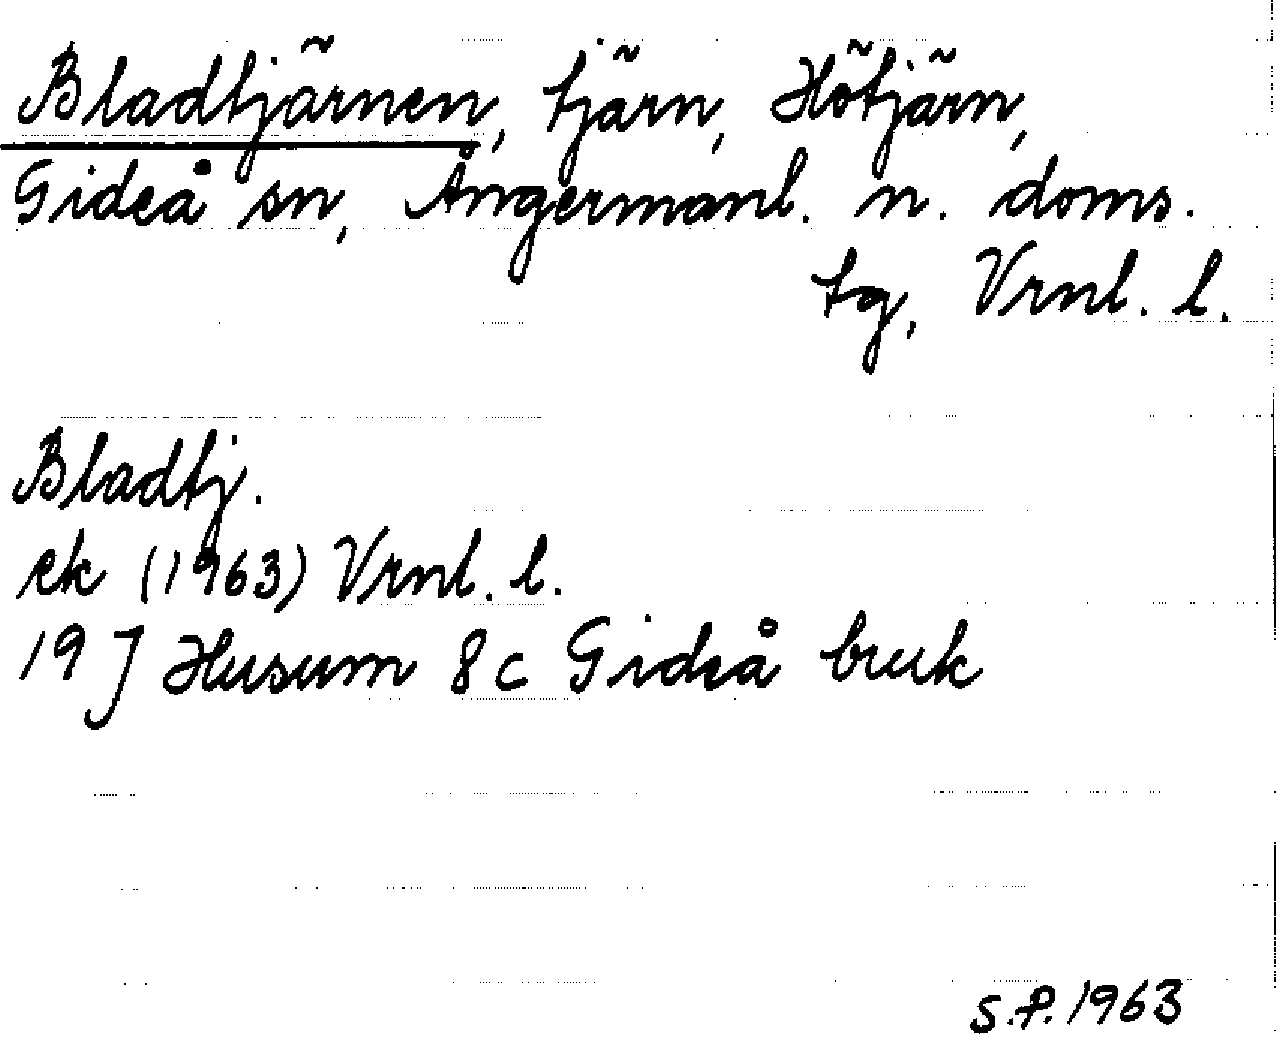 Bladtjärnen, tjärn, Hötjärn,
Gideå sn, Ångermanl. n. doms.
tg, Vrnl. l.
Bladtj.
ek (1963) Vrnl. l.
19 J Husum 8 c Gideå bruk
S.P. 1963